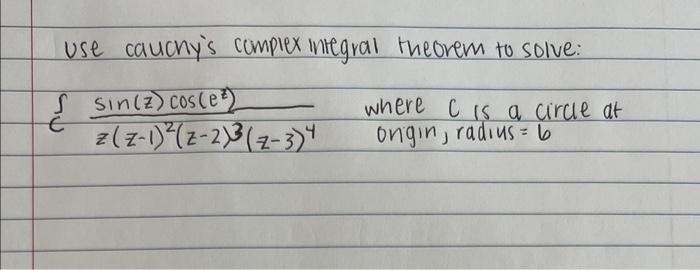 use cauchy's complex integral theorem to solve:
∫c sin(z) cos(e^z) / z(z-1)^2(z-2)^3(z-3)^4 where C is a circle at
origin, radius = 6